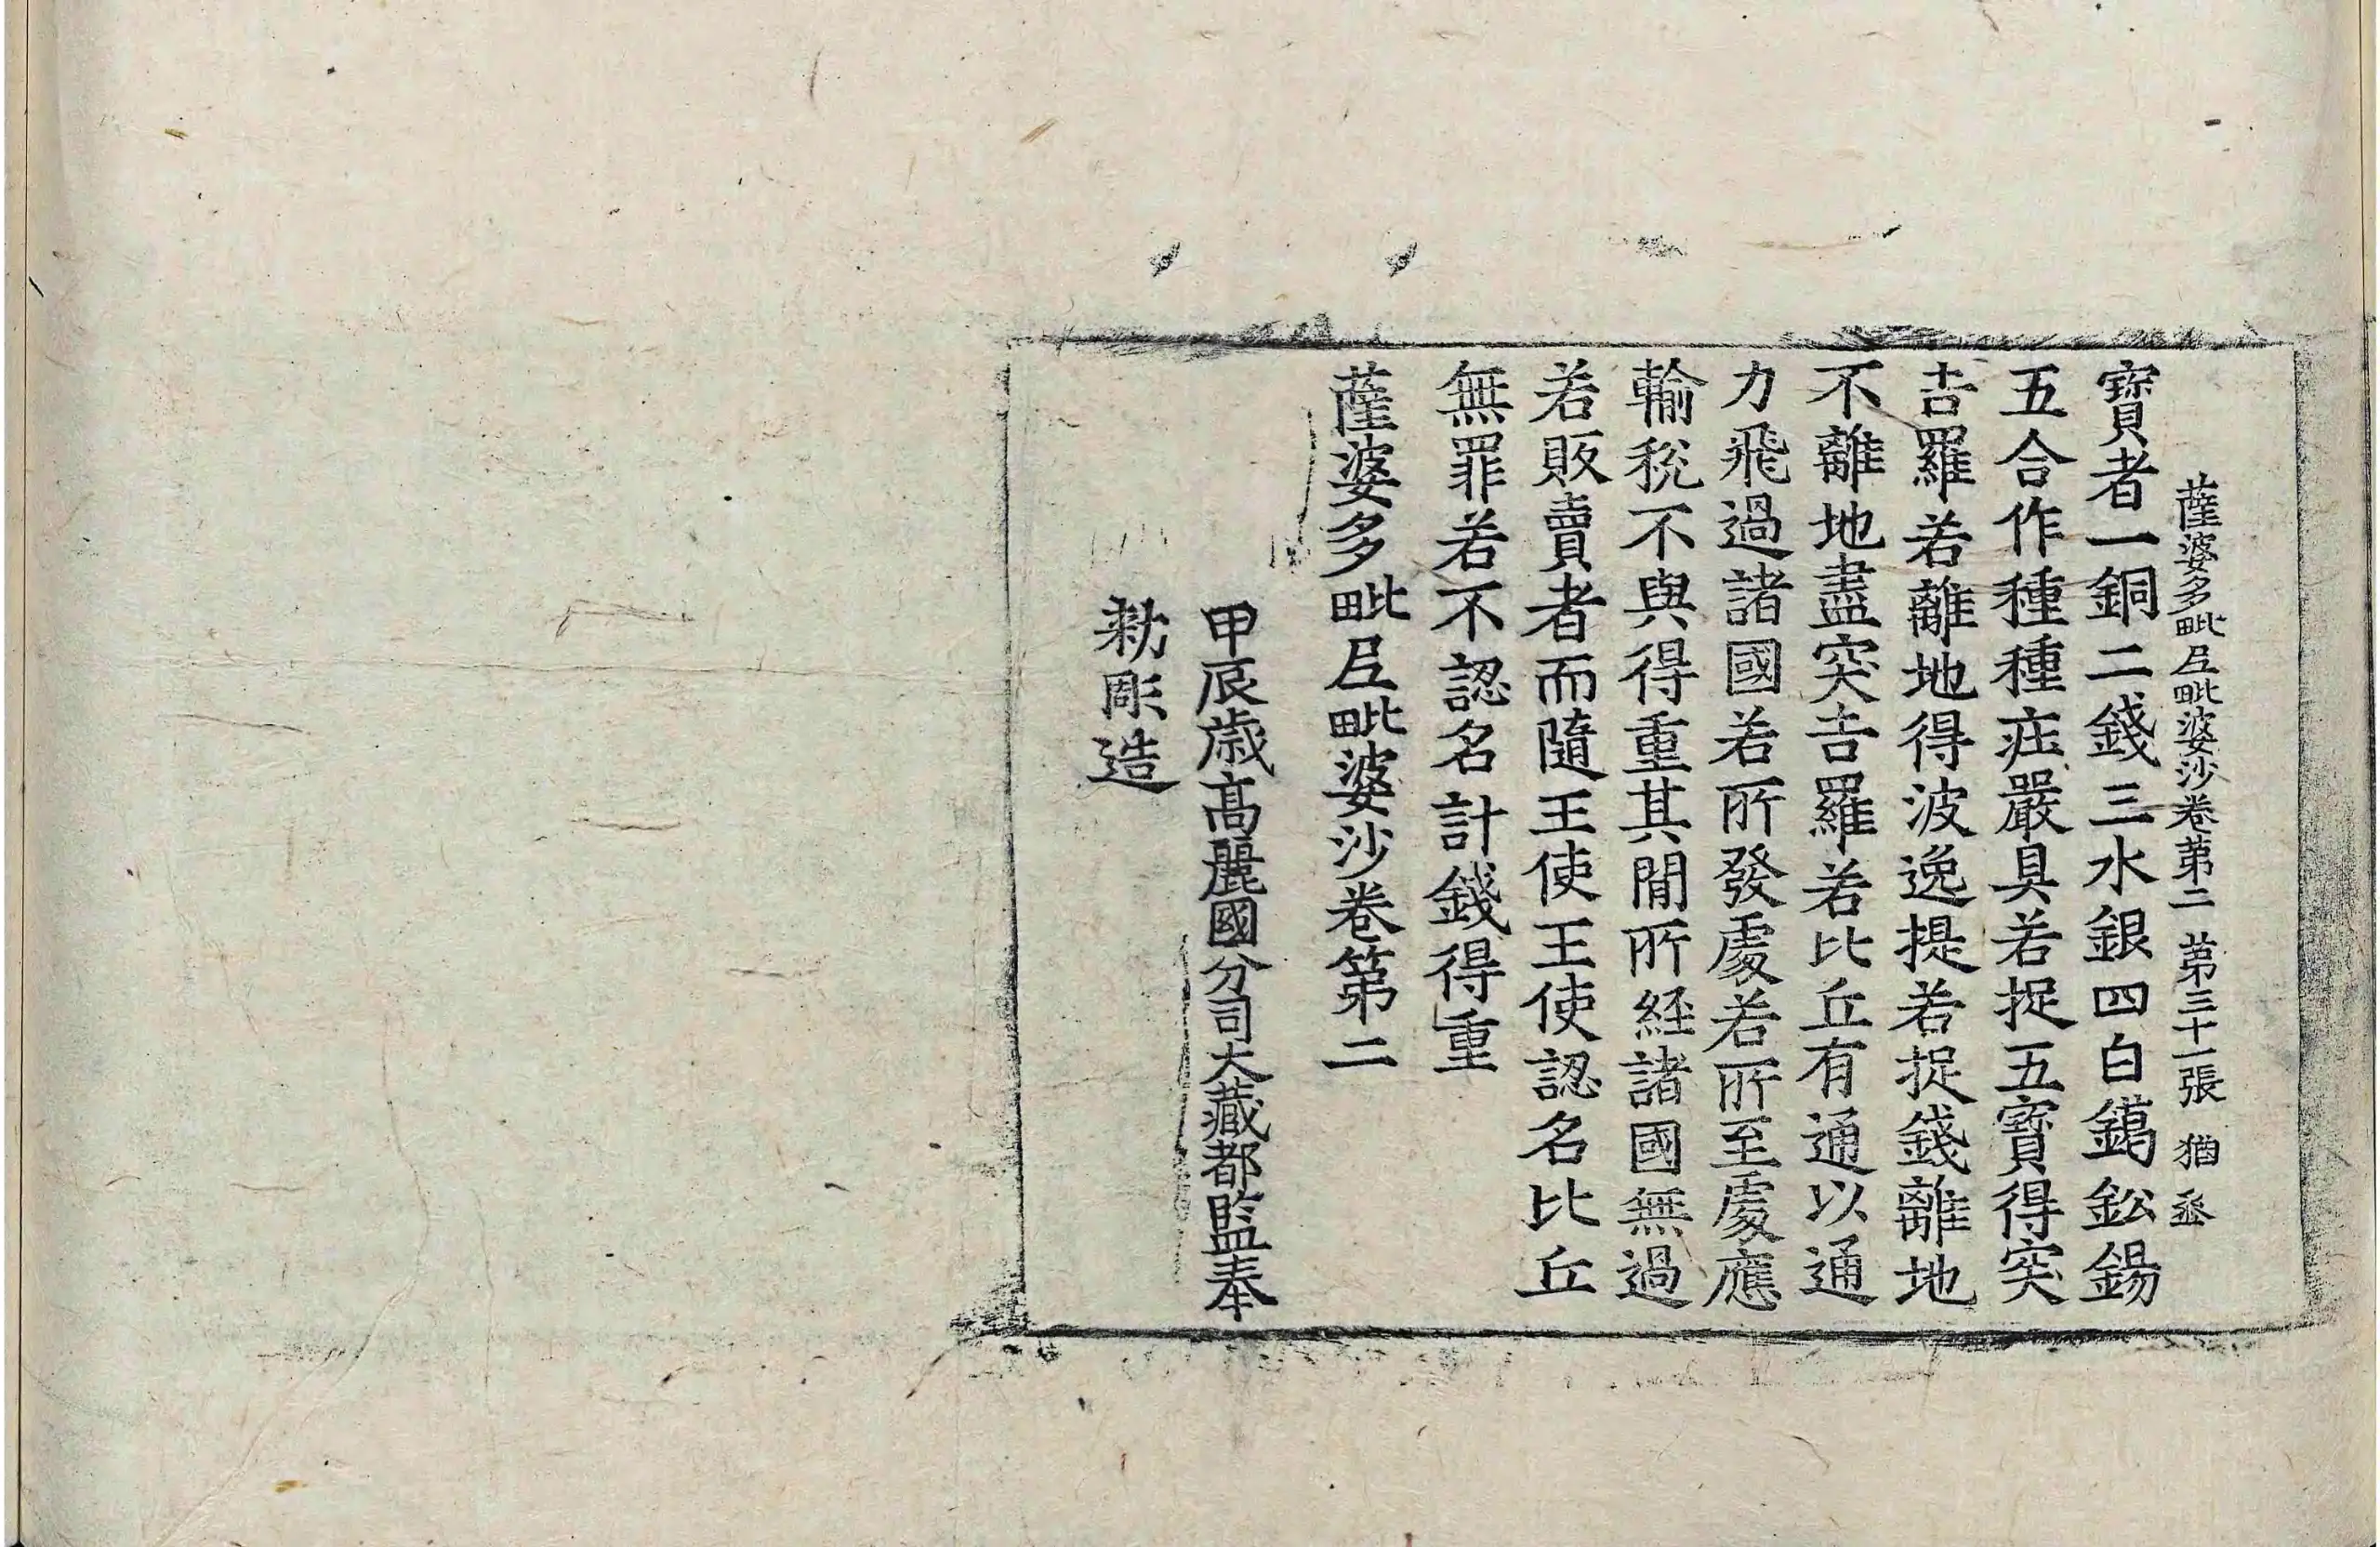 薩婆多毗尼毗婆沙卷第二 第三十一張 猶
寶者一銅二錢三水銀四白鑞鈆錫
五合作種種疘嚴具若捉五寶得突
吉羅若離地得波逸提若捉錢離地
不離地盡突吉羅若比丘有通以通
力飛過諸國若所發處若所至處應
輸稅不與得重其閒所經諸國無過
若販賣者而隨王使王使認名比丘
無罪若不認名計錢得重
薩婆多毗尼毗婆沙卷第二
甲辰歲高麗國分司大藏都監奉
勑彫造